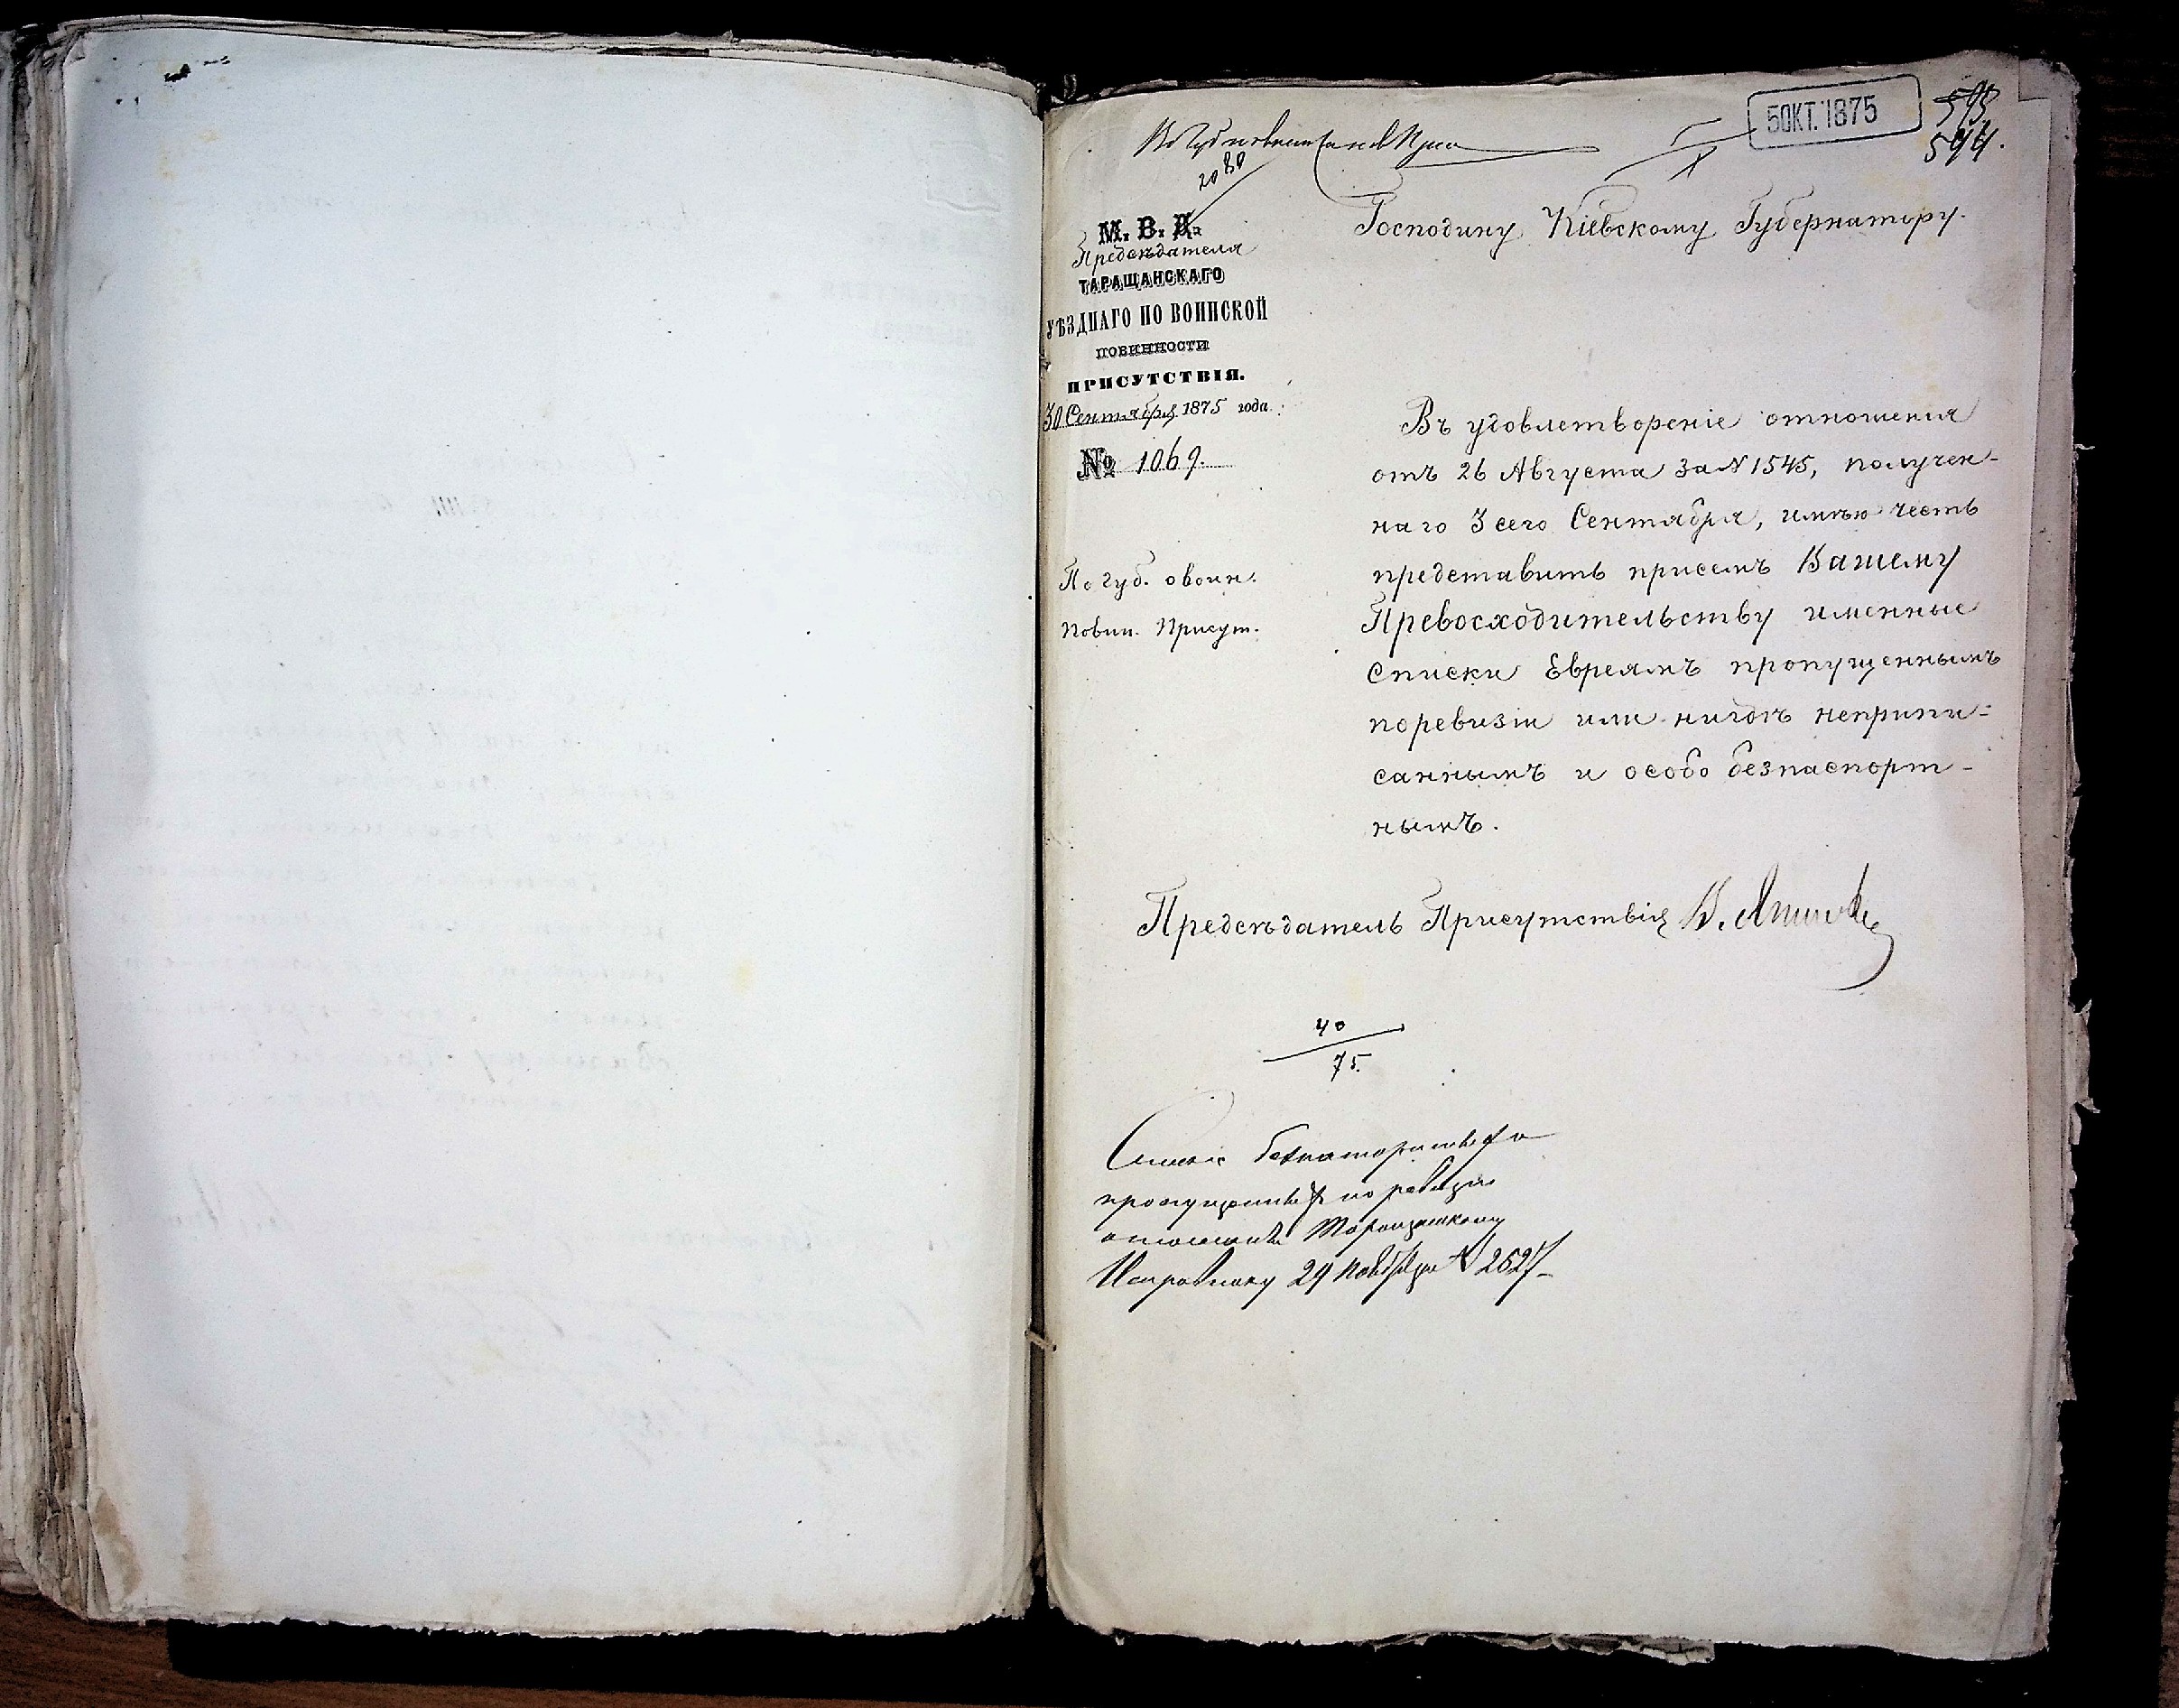 5 ОКТ. 1875
593
544.
2080
М. В. Д.
Предсѣдателя
ТАРАЩАНСКАГО
УѢЗДНАГО ПО ВОИНСКОЙ
ПОВИННОСТИ
ПРИСУТСТВІЯ.
30 Сентября 1875 года.
№ 1069.
По губ. о воин.
Повин. Присут.
Господину Кіевскому Губернатору.
Въ удовлетвореніе отношенія
отъ 26 Августа за N 1545, получен-
наго 3 сего Сентября, имѣю честь
представить присемъ Вашему
Превосходительству именные
списки Евреямъ пропущеннымъ
поревизіи или нигдѣ неприпи-
саннымъ и особо безпаспорт-
нымъ.
Предсѣдатель Присутствія В.
40
75.
пропущенных по ревизіи
Таращанскому
Исправнику 29 Ноября N 2627